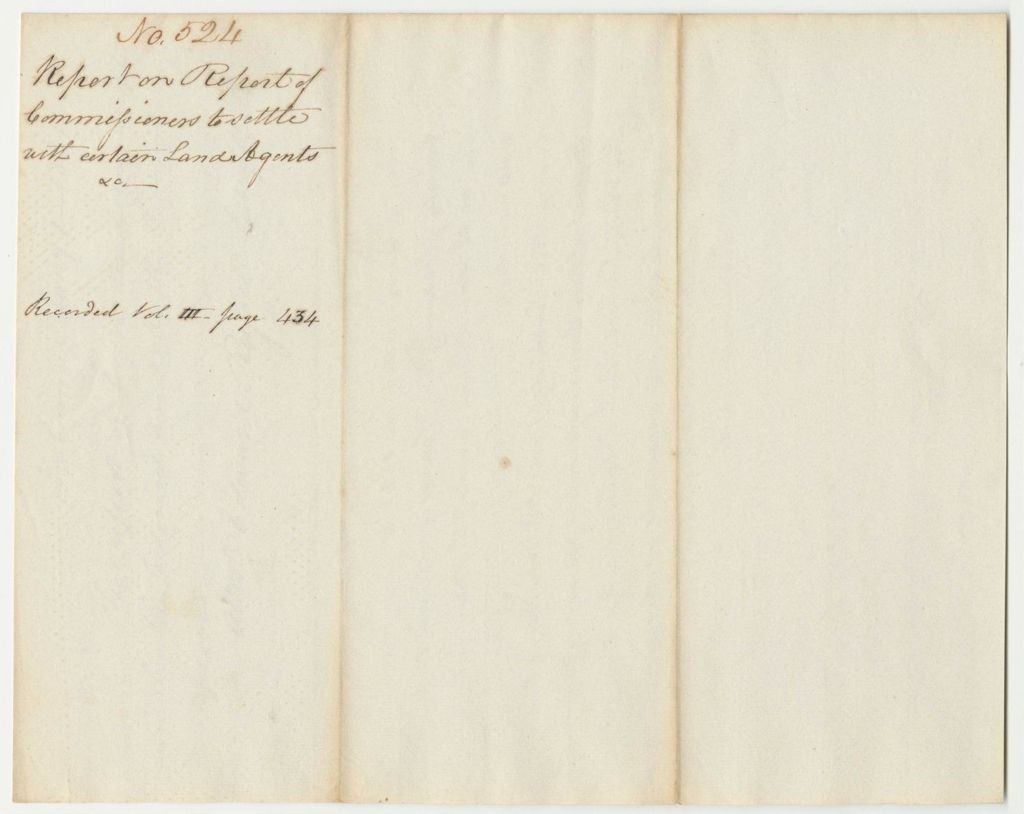 No. 524
Report on Report of
Commissioners to settle
with certain Land Agents
&c—
Recorded Vol. III - page 434